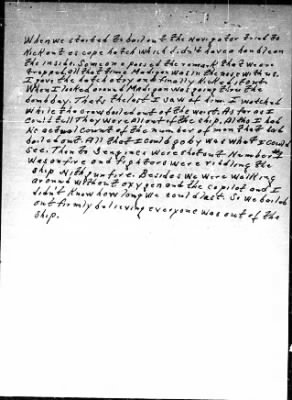 When we started to bail out the Navigator tried to
kick out escape hatch which didn't have a handle on
the inside. Someone passed the remark that we are
trapped, all that time Madigan was in the nose with us.
I gave the hatch a try and finally kicked it out.
When I looked around Madigan was going thru the
bombbay. Thats the last I saw of him. I watched
while the crew bailed out of the ... As far as I
could tell They were all out of the ship. All tho I had
No actual count of the number of men that had
bailed out. All that I could go by was what I could
see. Then to Engines were shot out Number
was on fire and fighters were riddling the
ship with gun fire. Besides we were walking
around without oxygen and the copilot and I
didn't know how long we could last. So we bailed
out firmly believing everyone was out of the
ship.